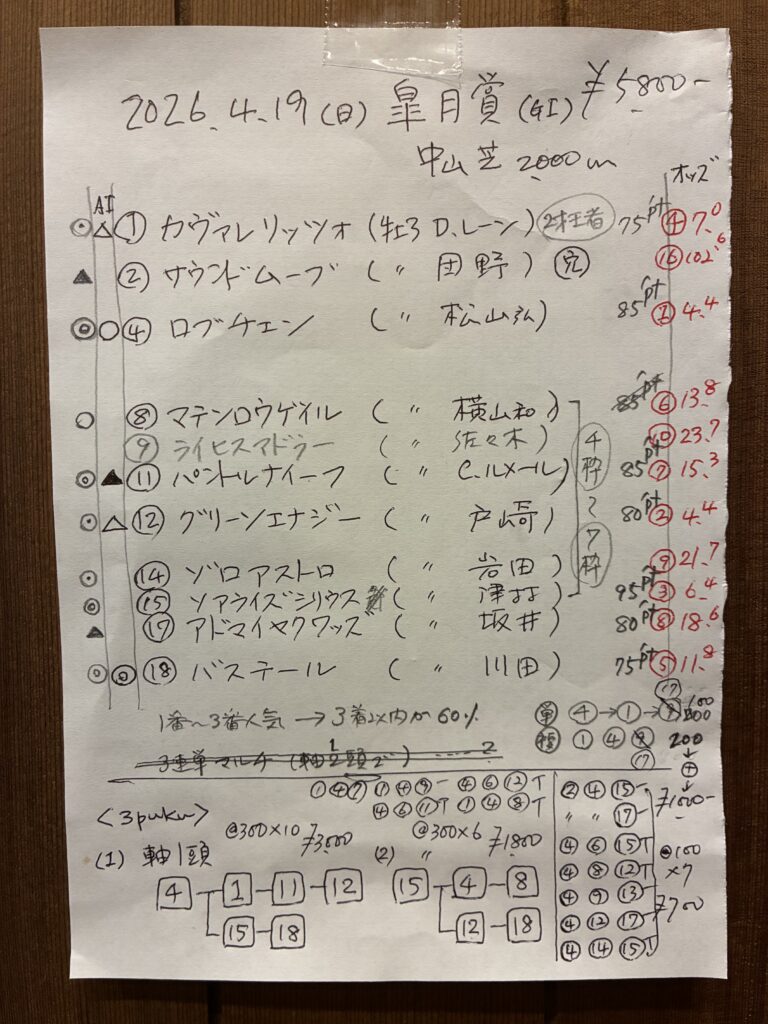 2026.4.19(日) 皐月賞(GI) ¥5,800-
中山芝2000m
オッズ
AI
◎ △ ① カヴァレリッツォ (牡3 D.レーン) 2才王者 75pt ④ 7.0
▲ ② サウンドムーブ ( 〃 団野 ) 穴 ⑯ 102.6
◎ ○ ④ ロブチェン ( 〃 松山弘) 85pt ① 4.4
○ ⑧ マテンロウゲイル ( 〃 横山和) 85pt ⑥ 13.8
⑨ ライヒスアドラー ( 〃 佐々木) ⑩ 23.7
⊙ ▲ ⑪ パントルナイーフ ( 〃 C.ルメール) 85pt ⑦ 15.3
⊙ △ ⑫ グリーンエナジー ( 〃 戸崎) 80pt ② 4.4
4枠〜7枠
⊙ ⑭ ゾロアストロ ( 〃 岩田) ⑨ 21.7
◎ ⑮ ソアライズシリウス ( 〃 津村) 95pt ③ 6.4
▲ ⑰ アドマイヤクワッズ ( 〃 坂井) 80pt ⑧ 18.6
◎ ◎ ⑱ バステール ( 〃 川田) 75pt ⑤ 11.8
1番〜3番人気 → 3着以内が60%
単 ④→①→ ⑰ 100
複 ① ④ ⑧ ⑰ 200
3連単マルチ (軸1頭で)
① ④ ⑰ ① ④ ⑨ ④ ⑥ ⑫
④ ⑥ ⑪ ① ④ ⑧
<3puku>
(1) 軸1頭 @300×10 ¥3,000
4 1 11 12
15 18
(2) 〃 @300×6 ¥1800
15 4 8
12 18
② ④ ⑮
〃 〃 ⑰
④ ⑥ ⑮
④ ⑧ ⑫
④ ⑨ ⑬
④ ⑫ ⑰
④ ⑭ ⑮
¥1000-
@100
×7
¥700